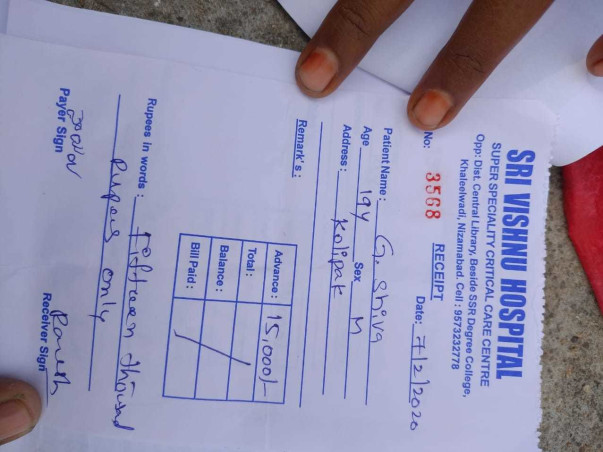 SRI VISHNU HOSPITAL
SUPER SPECIALITY CRITICAL CARE CENTRE
Opp: Dist. Central Library, Beside SSR Degree College,
Khaleelwadi, Nizamabad. Cell : 9573232778
RECEIPT
No: 3568 Date: 7/2/2020
Patient Name : G. Shiva
Age 19Y Sex M
Address : Kolipak
Remark's :
Advance : 15,000/-
Total :
Balance :
Bill Paid :
Rupees in words : Fifteen thousand
Rupees only
Payer Sign Receiver Sign